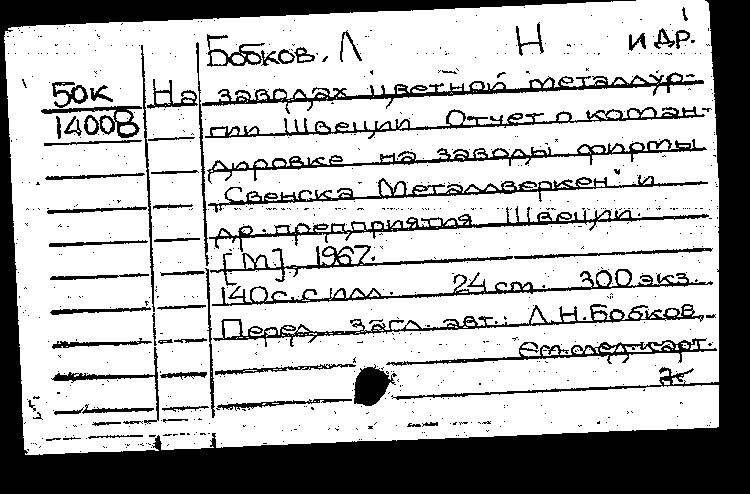 1
Бобков, Л Н и др.
50к На заводах цветной металлур-
1400В гии Швеции. Отчет о коман-
дировке на заводы фирмы
„Свенска Металлверкен" и
др. предприятия Швеции.
[М], 1967.
140с. с илл. 24 см. 300 экз.
Перед загл. авт.: Л.Н.Бобков,
см.след.карт.